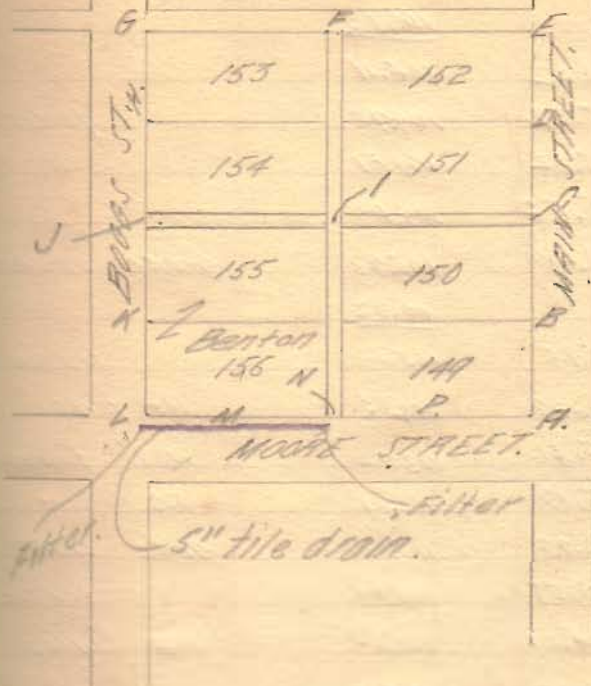 G F E
153 152
D
154 151
BOGGS ST.
MAIN STREET.
J I C
155 150
K B
Benton
156 N 149
L M P. A.
MOORE STREET.
Filter. Filter
5" tile drain.